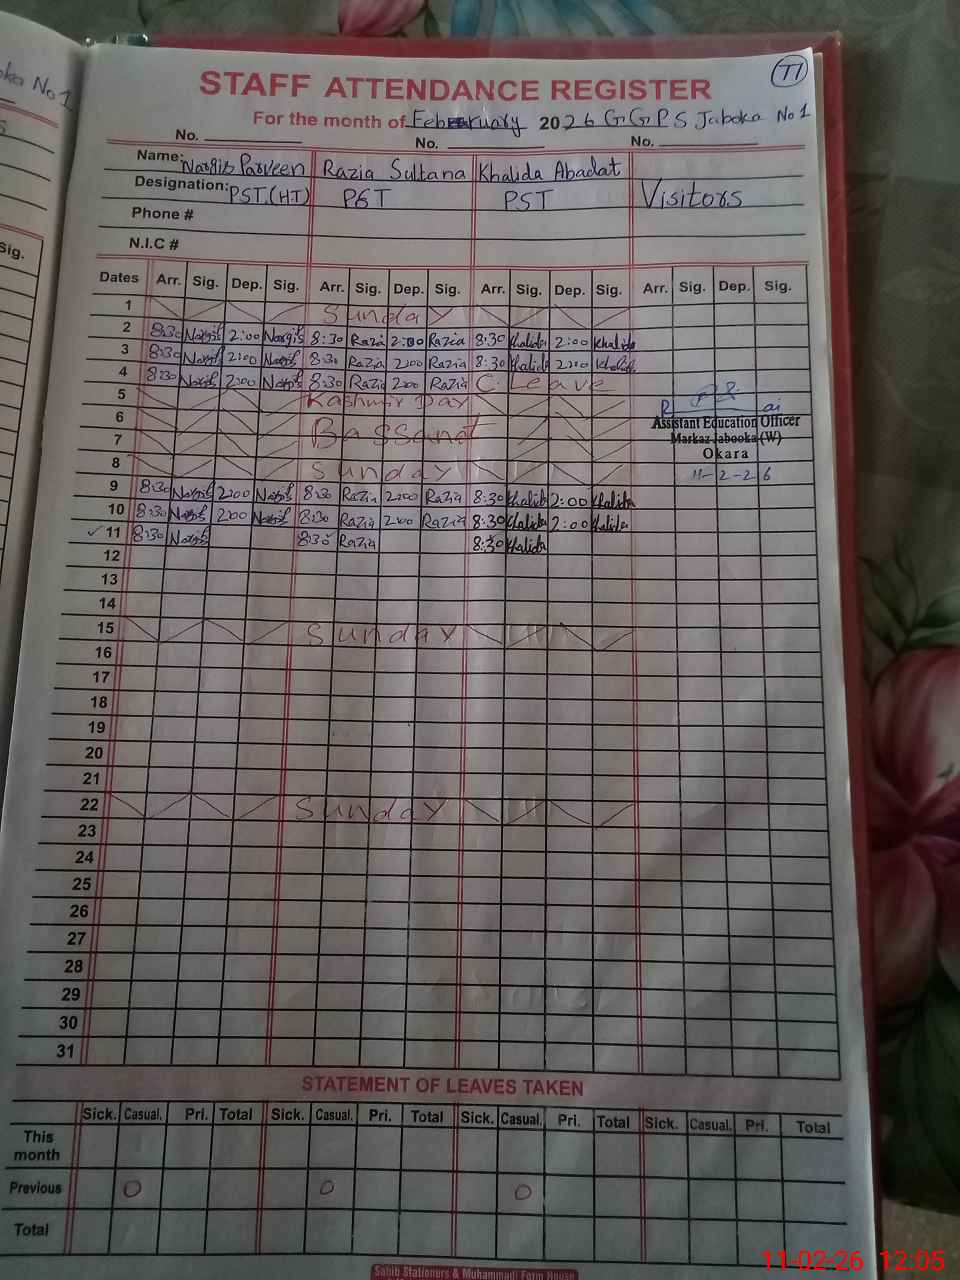 oka No 1
S
Sig.
T1
STAFF ATTENDANCE REGISTER
For the month of February 2026 GGPS Jaboka No 1
No. No. No.
Name: Nargis Parveen Razia Sultana Khalida Abadat
Designation: PST.(H.T) PST PST Visitors
Phone #
N.I.C #
Dates Arr. Sig. Dep. Sig. Arr. Sig. Dep. Sig. Arr. Sig. Dep. Sig. Arr. Sig. Dep. Sig.
1 Sunday
2 8:30 Nargis 2:00 Nargis 8:30 Razia 2:00 Razia 8:30 Khalida 2:00 Khalida
3 8:30 Nargis 2:00 Nargis 8:30 Razia 2:00 Razia 8:30 Khalida 2:00 Khalida
4 8:30 Nargis 2:00 Nargis 8:30 Razia 2:00 Razia C. Leave
5 Kashmir Day
6 Bassanat
7
Assistant Education Officer
Markaz Jabooka (W)
Okara
8 Sunday
11-2-26
9 8:30 Nargis 2:00 Nargis 8:30 Razia 2:00 Razia 8:30 Khalida 2:00 Khalida
10 8:30 Nargis 2:00 Nargis 8:30 Razia 2:00 Razia 8:30 Khalida 2:00 Khalida
✓ 11 8:30 Nargis 8:30 Razia 8:30 Khalida
12
13
14
15 Sunday
16
17
18
19
20
21
22 Sunday
23
24
25
26
27
28
29
30
31
STATEMENT OF LEAVES TAKEN
Sick. Casual. Pri. Total Sick. Casual. Pri. Total Sick. Casual. Pri. Total Sick. Casual. Pri. Total
This month
Previous 0 0 0
Total
Sahib Stationers & Muhammadi Form House
11-02-26 12:05